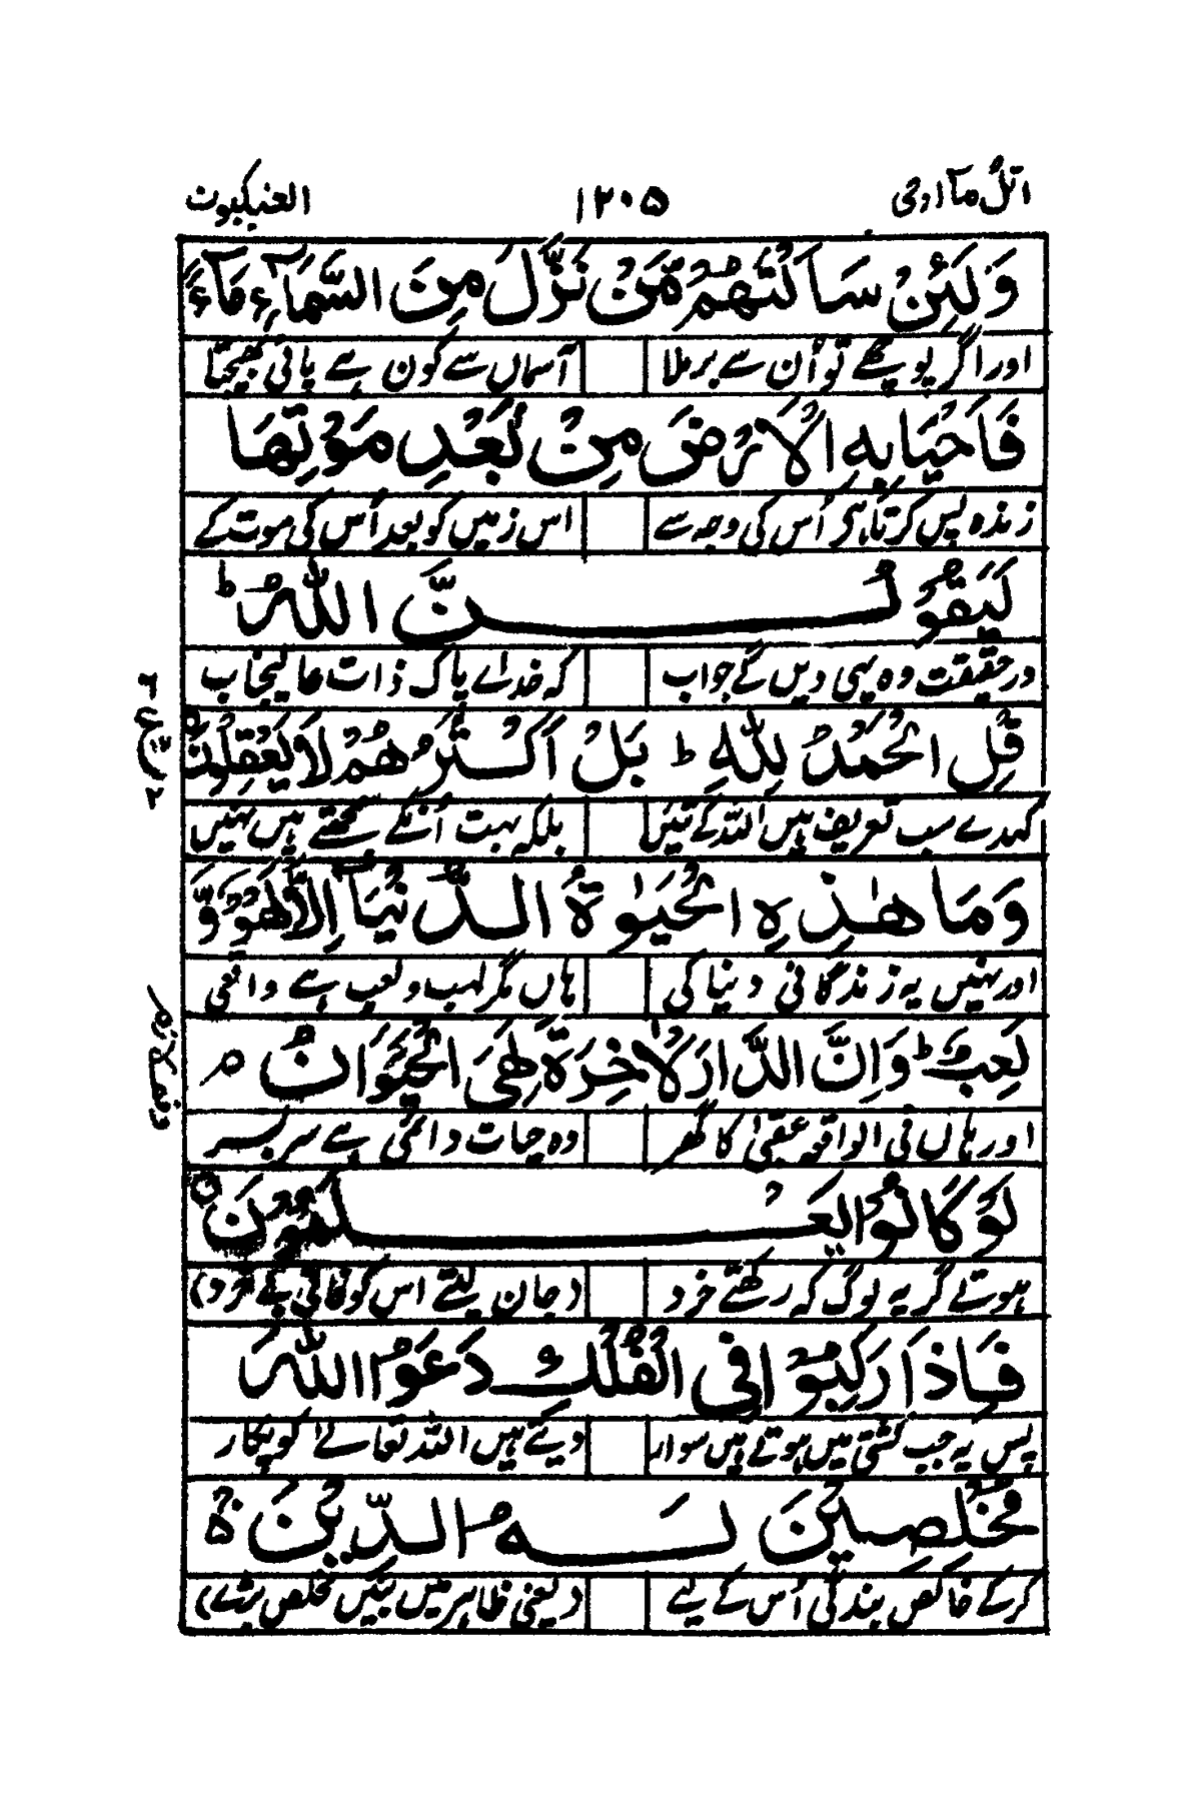 اتلُ مآ اوحی ۱۲۰۵ العنکبوت
وَلَئِنْ سَاَلْتَهُمْ مَّنْ نَّزَّلَ مِنَ السَّمَآءِ مَآءً
اور اگر پوچھے تو اُن سے برملا آسماں سے کون ہے پانی بھیجتا
فَاَحْيَا بِهِ الْاَرْضَ مِنْ بَعْدِ مَوْتِهَا
زندہ پس کرتا ہر اُس کی وجہ سے اس زمیں کو بعد اُس کی موت کے
لَيَقُوْلُنَّ اللّٰهُ ؕ
درحقیقت وہ یہی دیں گے جواب کہ خدائے پاک ذات عالیجناب
قُلِ الْحَمْدُ لِلّٰهِ ؕ بَلْ اَكْثَرُهُمْ لَا يَعْقِلُوْنَ
کہدے سب تعریف ہیں اللہ کے تئیں بلکہ بہت اُنکے سمجھتے ہیں نہیں
وَمَا هٰذِهِ الْحَيٰوةُ الدُّنْيَآ اِلَّا لَهْوٌ وَّ
اور نہیں یہ زندگانی دنیا کی ہاں مگر لہب ولعب ہے واقعی
لَعِبٌ ؕ وَاِنَّ الدَّارَ الْاٰخِرَةَ لَهِيَ الْحَيَوَانُ م
اور ہاں فی الواقعہ عقبیٰ کا گھر وہ حیات دائمی ہے سربسر
لَوْ كَانُوْا يَعْلَمُوْنَ
ہوتے گر یہ لوگ کہ رکھتے خرد (جان لیتے اس کو فانی بے خرد)
فَاِذَا رَكِبُوْا فِي الْفُلْكِ دَعَوُا اللّٰهَ
پس یہ جب کشتی میں ہوتے ہیں سوار دیتے ہیں اللہ تعالےٰ کو پکار
مُخْلِصِيْنَ لَهُ الدِّيْنَ ۚ
کرکے خالص بندگی اُس کے لیے (یعنی ظاہر میں بنیں مخلص بڑے)
وقف لازم